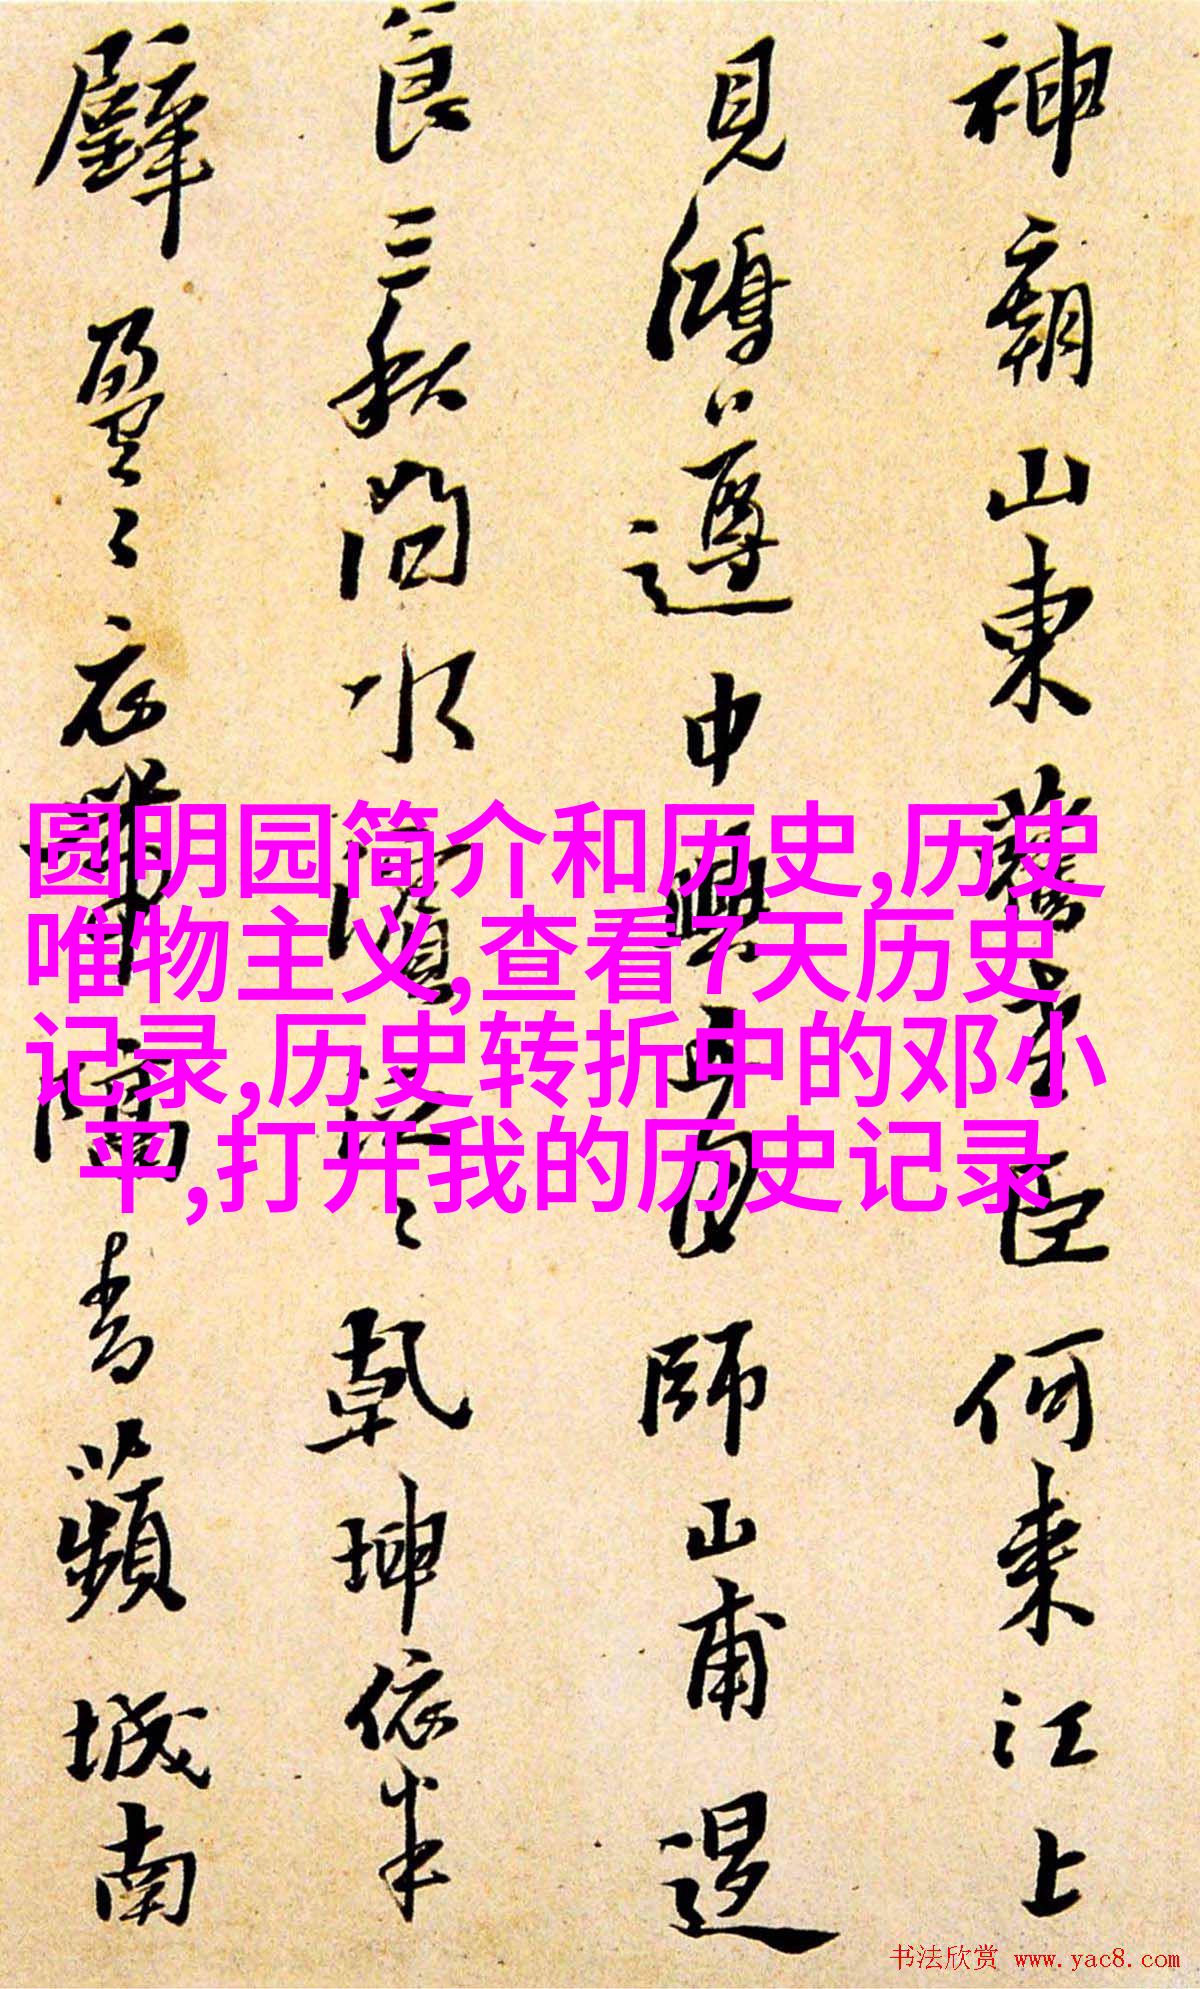 神廟山東舊臣何来江上
見鴻遵中興
師山甫遇
食三秋間水濱
乾坤依
璧盈〻衣帶
青蘋城南
圆明园简介和历史,历史
唯物主义,查看7天历史
记录,历史转折中的邓小
平,打开我的历史记录
书法欣赏 www.yac8.com